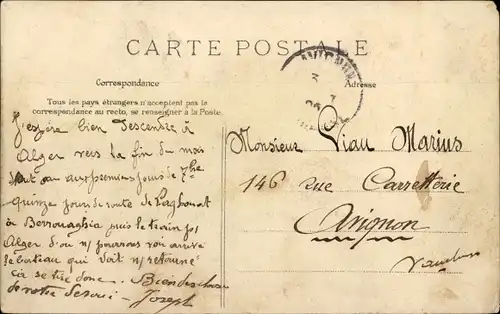 CARTE POSTALE
Correspondance
Adresse
Tous les pays étrangers n'acceptent pas la
correspondance au recto, se renseigner à la Poste.
J'espère bien descendre à
Alger vers la fin du mois
ou aux premiers jours de 7bre
quinze jours de route de Laghouat
à Berrouaghia puis le train
Alger d'où n/ pourrons voir
le bateau qui doit n/
ça se tire donc. Bien des choses
de votre Joseph
Monsieur Viau Marius
146 rue Carretterie
Avignon
Vaucluse